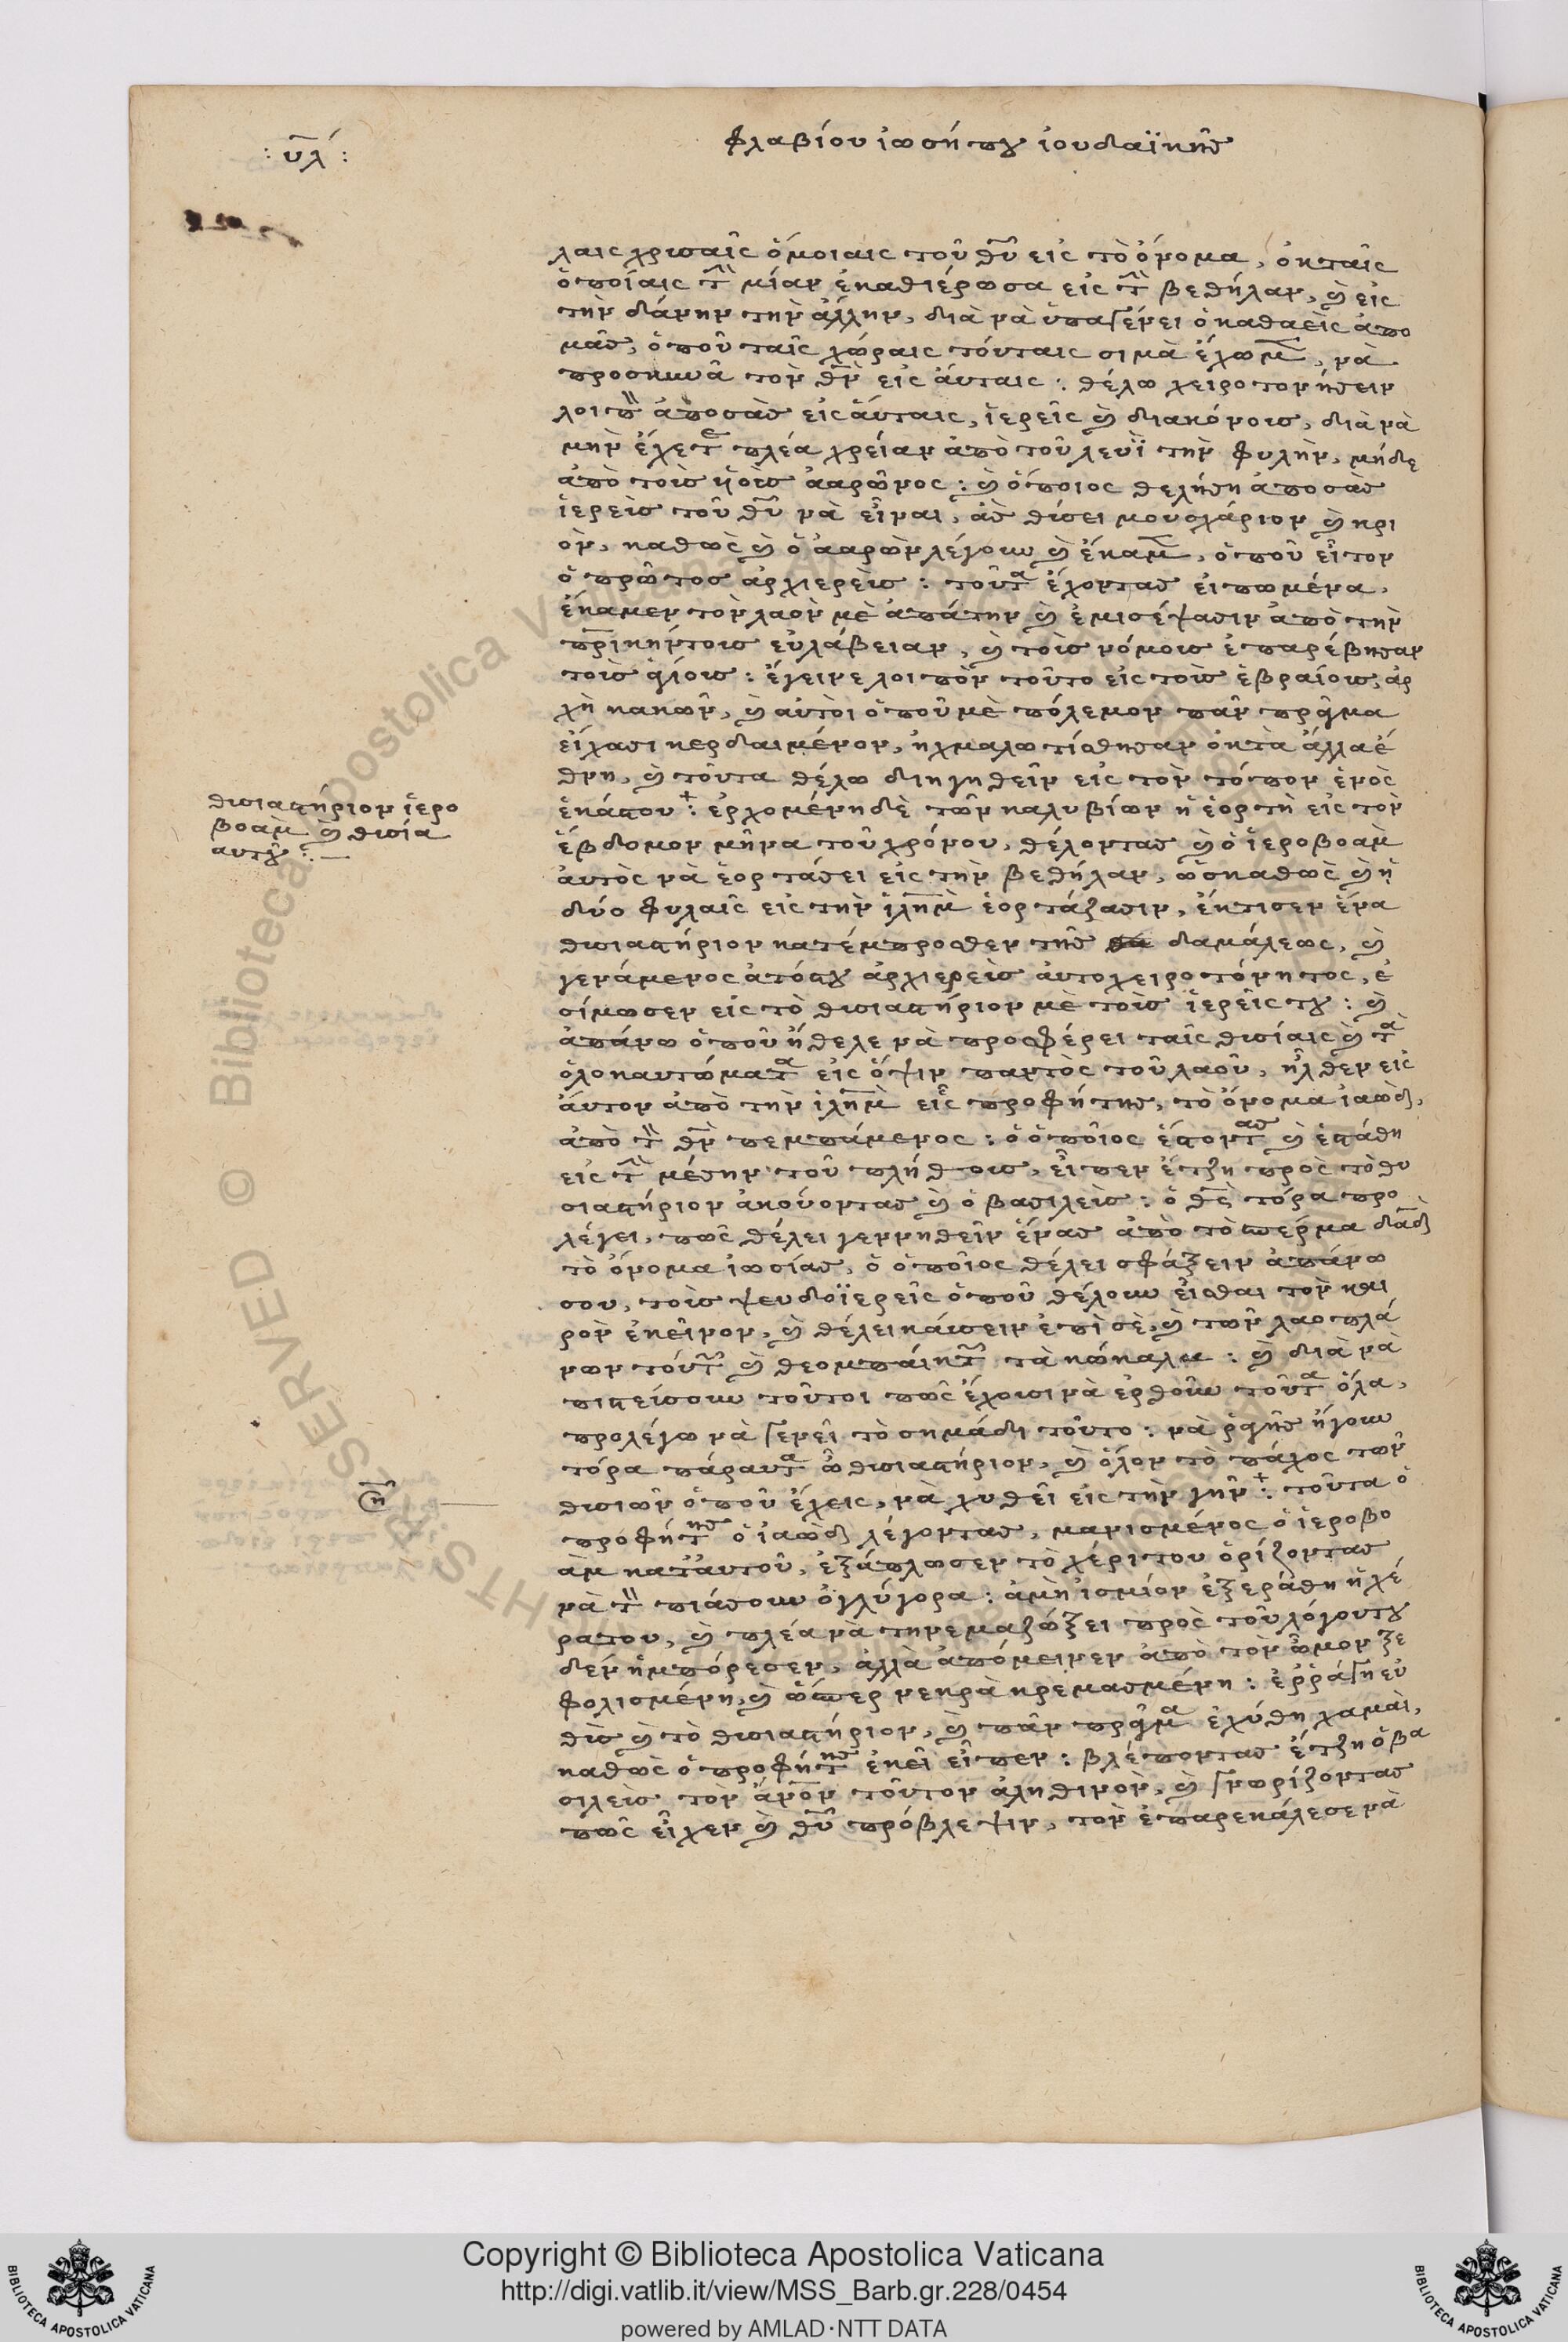 : υλ΄ :
φλαβίου ἰωσήπου ἰουδαϊκῆς
λαις χρισαῖς ὅμοιαις τοῦ θῦ εἰς τὸ ὄνομα, ὀκταῖς
ὁποίαις τὴν μίαν ἐκαθιέρωσα εἰς τὴν βεθήλαν, καὶ εἰς
τὴν δάνην τὴν ἄλλην, διὰ νὰ ὑπαγένει ὁ καθαεὶς ἀπο
μᾶς, ὁποῦ ταῖς χώραις τούταις σιμὰ ἔχωμεν, νὰ
προσκυνᾶ τὸν θν εἰς ἄυταις : θέλω χειροτονήσειν
λοιπὸν ἀποσὰς εἰς ἄυταις, ἱερεῖς καὶ διακόνους, διὰ νὰ
μὴν ἔχετε πλέα χρείαν ἀπὸ τοῦ λευῒ τὴν φυλὴν, μήδε
ἀπὸ τοὺς ὑιοὺς ἀαρῶνος : καὶ ὅποιος θελήση ἀποσᾶς
ἱερεὺς τοῦ θῦ νὰ εἶναι, ἂς θύσει μουσχάριον καὶ κρι
ὸν, καθὼς καὶ ὁ ἀαρὼν λέγουν καὶ ἔκαμεν, ὁποῦ εἶτον
ὁ πρῶτος ἀρχιερεὺς : τοῦτα ἔχοντας εἰπωμένα,
ἔκαμεν τὸν λαὸν μὲ ἀπάτην καὶ ἐμισέψασιν ἀπὸ τὴν
πρικήντους εὐλάβειαν, καὶ τοὺς νόμους ἐπαρέβησαν
τοὺς
ἔγεινε λοιπὸν τοῦτο εἰς τοὺς ἑβραίους, ἀρ
χὴ κακῶν, καὶ αὐτοὶ ὁποῦ μὲ πόλεμον πᾶν πρᾶγμα
εἴχασι κερδαιμένον, ἠχμαλωτίσθησαν ὀκτὰ ἄλλα ἔ
θνη, καὶ τοῦτα θέλω διηγηθεῖν εἰς τὸν τόπον ἑνὸς
ἑκάστου : ἐρχομένη δὲ τῶν καλυβίων ἡ ἑορτὴ εἰς τὸν
ἕβδομον μῆνα τοῦ χρόνου, θέλοντας καὶ ὁ ἱεροβοὰμ
ἀυτὸς νὰ ἑορτάσει εἰς τὴν βεθήλαν, ὧσκαθὼς καὶ ἡ
δύο φυλαῖς εἰς τὴν ἱλημ ἑορτάζασιν, ἔκτισεν ἕνα
θυσιαστήριον κατέμπροσθεν τῆς δαμάλεως, καὶ
γενάμενος ἀτόςου ἀρχιερεὺς ἀυτοχειροτόνητος, ἐ
σίμωσεν εἰς τὸ θυσιαστήριον μὲ τοὺς ἱερεῖς του : καὶ
ἀπάνω ὁποῦ ἤθελε νὰ προσφέρει ταῖς θυσίαις καὶ τὰ
ὁλοκαυτώματα εἰς ὄψιν παντὸς τοῦ λαοῦ, ἦλθεν εἰς
ἄυτον ἀπὸ τὴν ἱλημ εἷς προφήτης, τὸ ὄνομα ἰαὼδ,
ἀπὸ τὸν θν πεμπάμενος : ὁ ὁποῖος ἔστοντας καὶ ἐστάθη
εἰς τὴν μέσην τοῦ πλήθους, εἶπεν ἔτζη πρὸς τὸ θυ
σιαστήριον ἀκούοντας καὶ ὁ βασιλεὺς : ὁ θς τόρα προ
λέγει, πῶς θέλει γεννηθεῖν ἕνας ἀπὸ τὸ σπέρμα δαδ
τὸ ὄνομα ἰωσίας, ὁ ὁποῖος θέλει σφάξειν ἀπάνω
σου, τοὺς ψευδοϊερεῖς ὁποῦ θέλουν εἶσθαι τὸν και
ρὸν ἐκεῖνον, καὶ θέλει κάυσειν ἐπὶ σὲ, καὶ τῶν λαοπλά
νων τούτων καὶ θεομπαίκτων τὰ κώκαλα : καὶ διὰ νὰ
πιστεύσουν τοῦτοι πῶς ἔχουσι νὰ ἐρθοῦν τοῦτα ὅλα,
προλέγω νὰ γενεῖ τὸ σημάδι τοῦτο : νὰ ῥαγῆς ἤγουν
τόρα πάραυτα ὦ θυσιαστήριον, καὶ ὅλον τὸ πάχος τῶν
θυσιῶν ὁποῦ ἔχεις, νὰ χυθεῖ εἰς τὴν γῆν : τοῦτα ὁ
προφήτης ὁ ἰαὼδ λέγοντας, μανισμένος ὁ ἱεροβο
ὰμ κατἀυτοῦ, ἐξάπλωσεν τὸ χέρι του ὁρίζοντας
νὰ τὸν πιάσουν ὀγλύγορα : ἀμὴ ἰσμίον ἐξεράθη ἡ χέ
ρατου, καὶ πλέα νὰ τηνεμαζώξει πρὸς τοῦ λόγουτου
δὲν ἠμπόρεσεν, ἀλλὰ ἀπόμεινεν ἀπὸ τὸν ὦμον ξε
φολισμένη, καὶ ὥσπερ νεκρὰ κρεμασμένη : ἐῤῥάγη εὐ
θὺς καὶ τὸ θυσιαστήριον, καὶ πᾶν πρᾶγμα ἐχύθη χαμαὶ,
καθὼς ὁ προφήτης ἐκεῖ εἶπεν : βλέποντας ἔτζη ὁ βα
σιλεὺς τὸν ἄνον τοῦτον ἀληθινὸν, καὶ γνωρίζοντας
πῶς εἶχεν καὶ θῦ πρόβλεψιν, τὸν ἐπαρεκάλεσε νὰ
θυσιαστήριον ἱερο
βοὰμ καὶ θυσία
αυτοῦ :. —
Copyright © Biblioteca Apostolica Vaticana
http://digi.vatlib.it/view/MSS_Barb.gr.228/0454
powered by AMLAD·NTT DATA